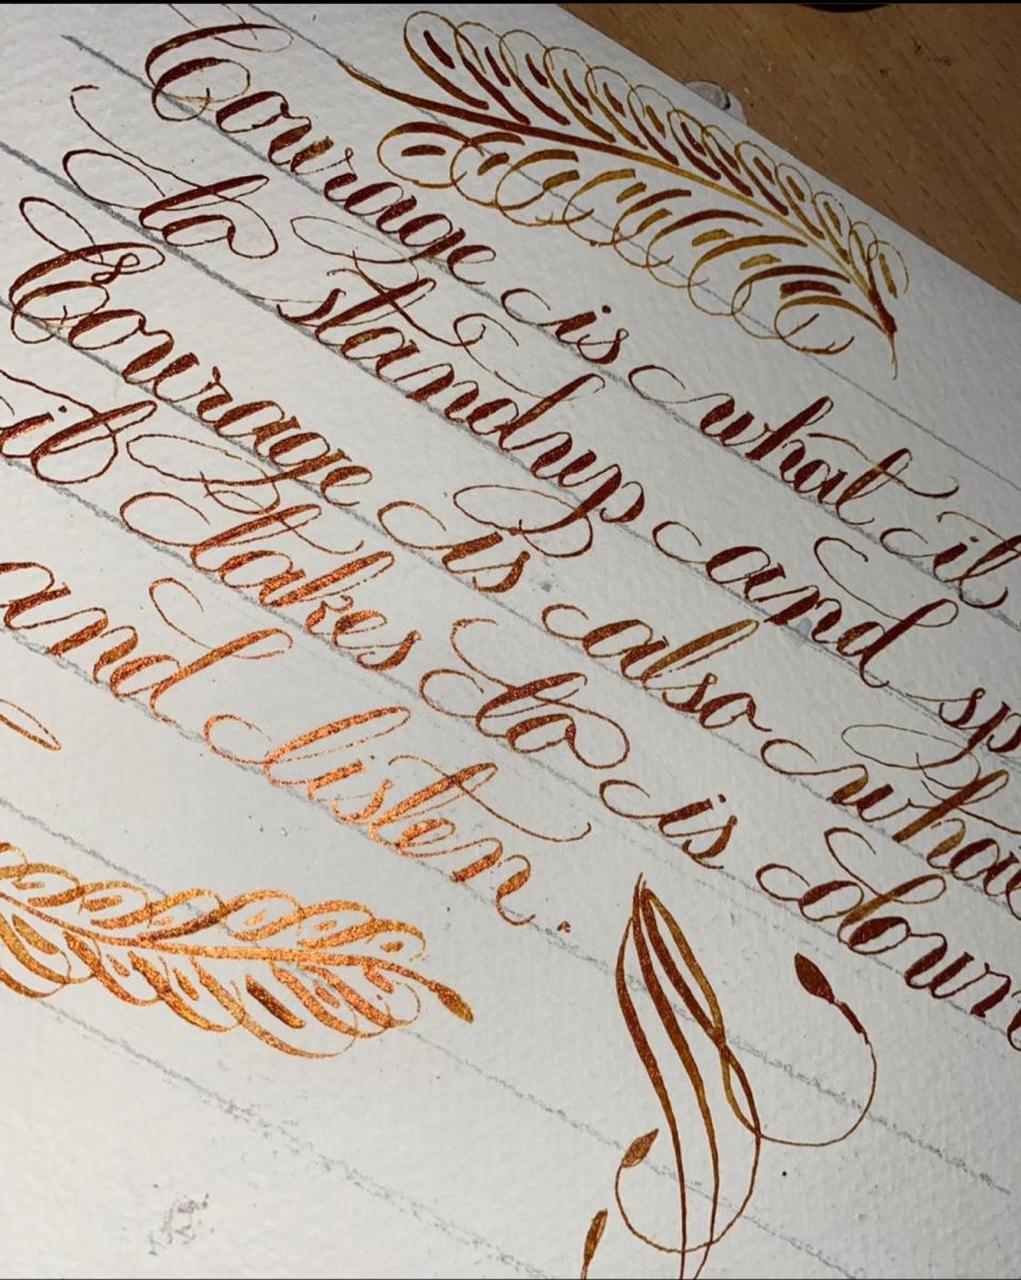 Courage is what it
to standup and sp
Courage is also wha
it takes to is down
and listen.